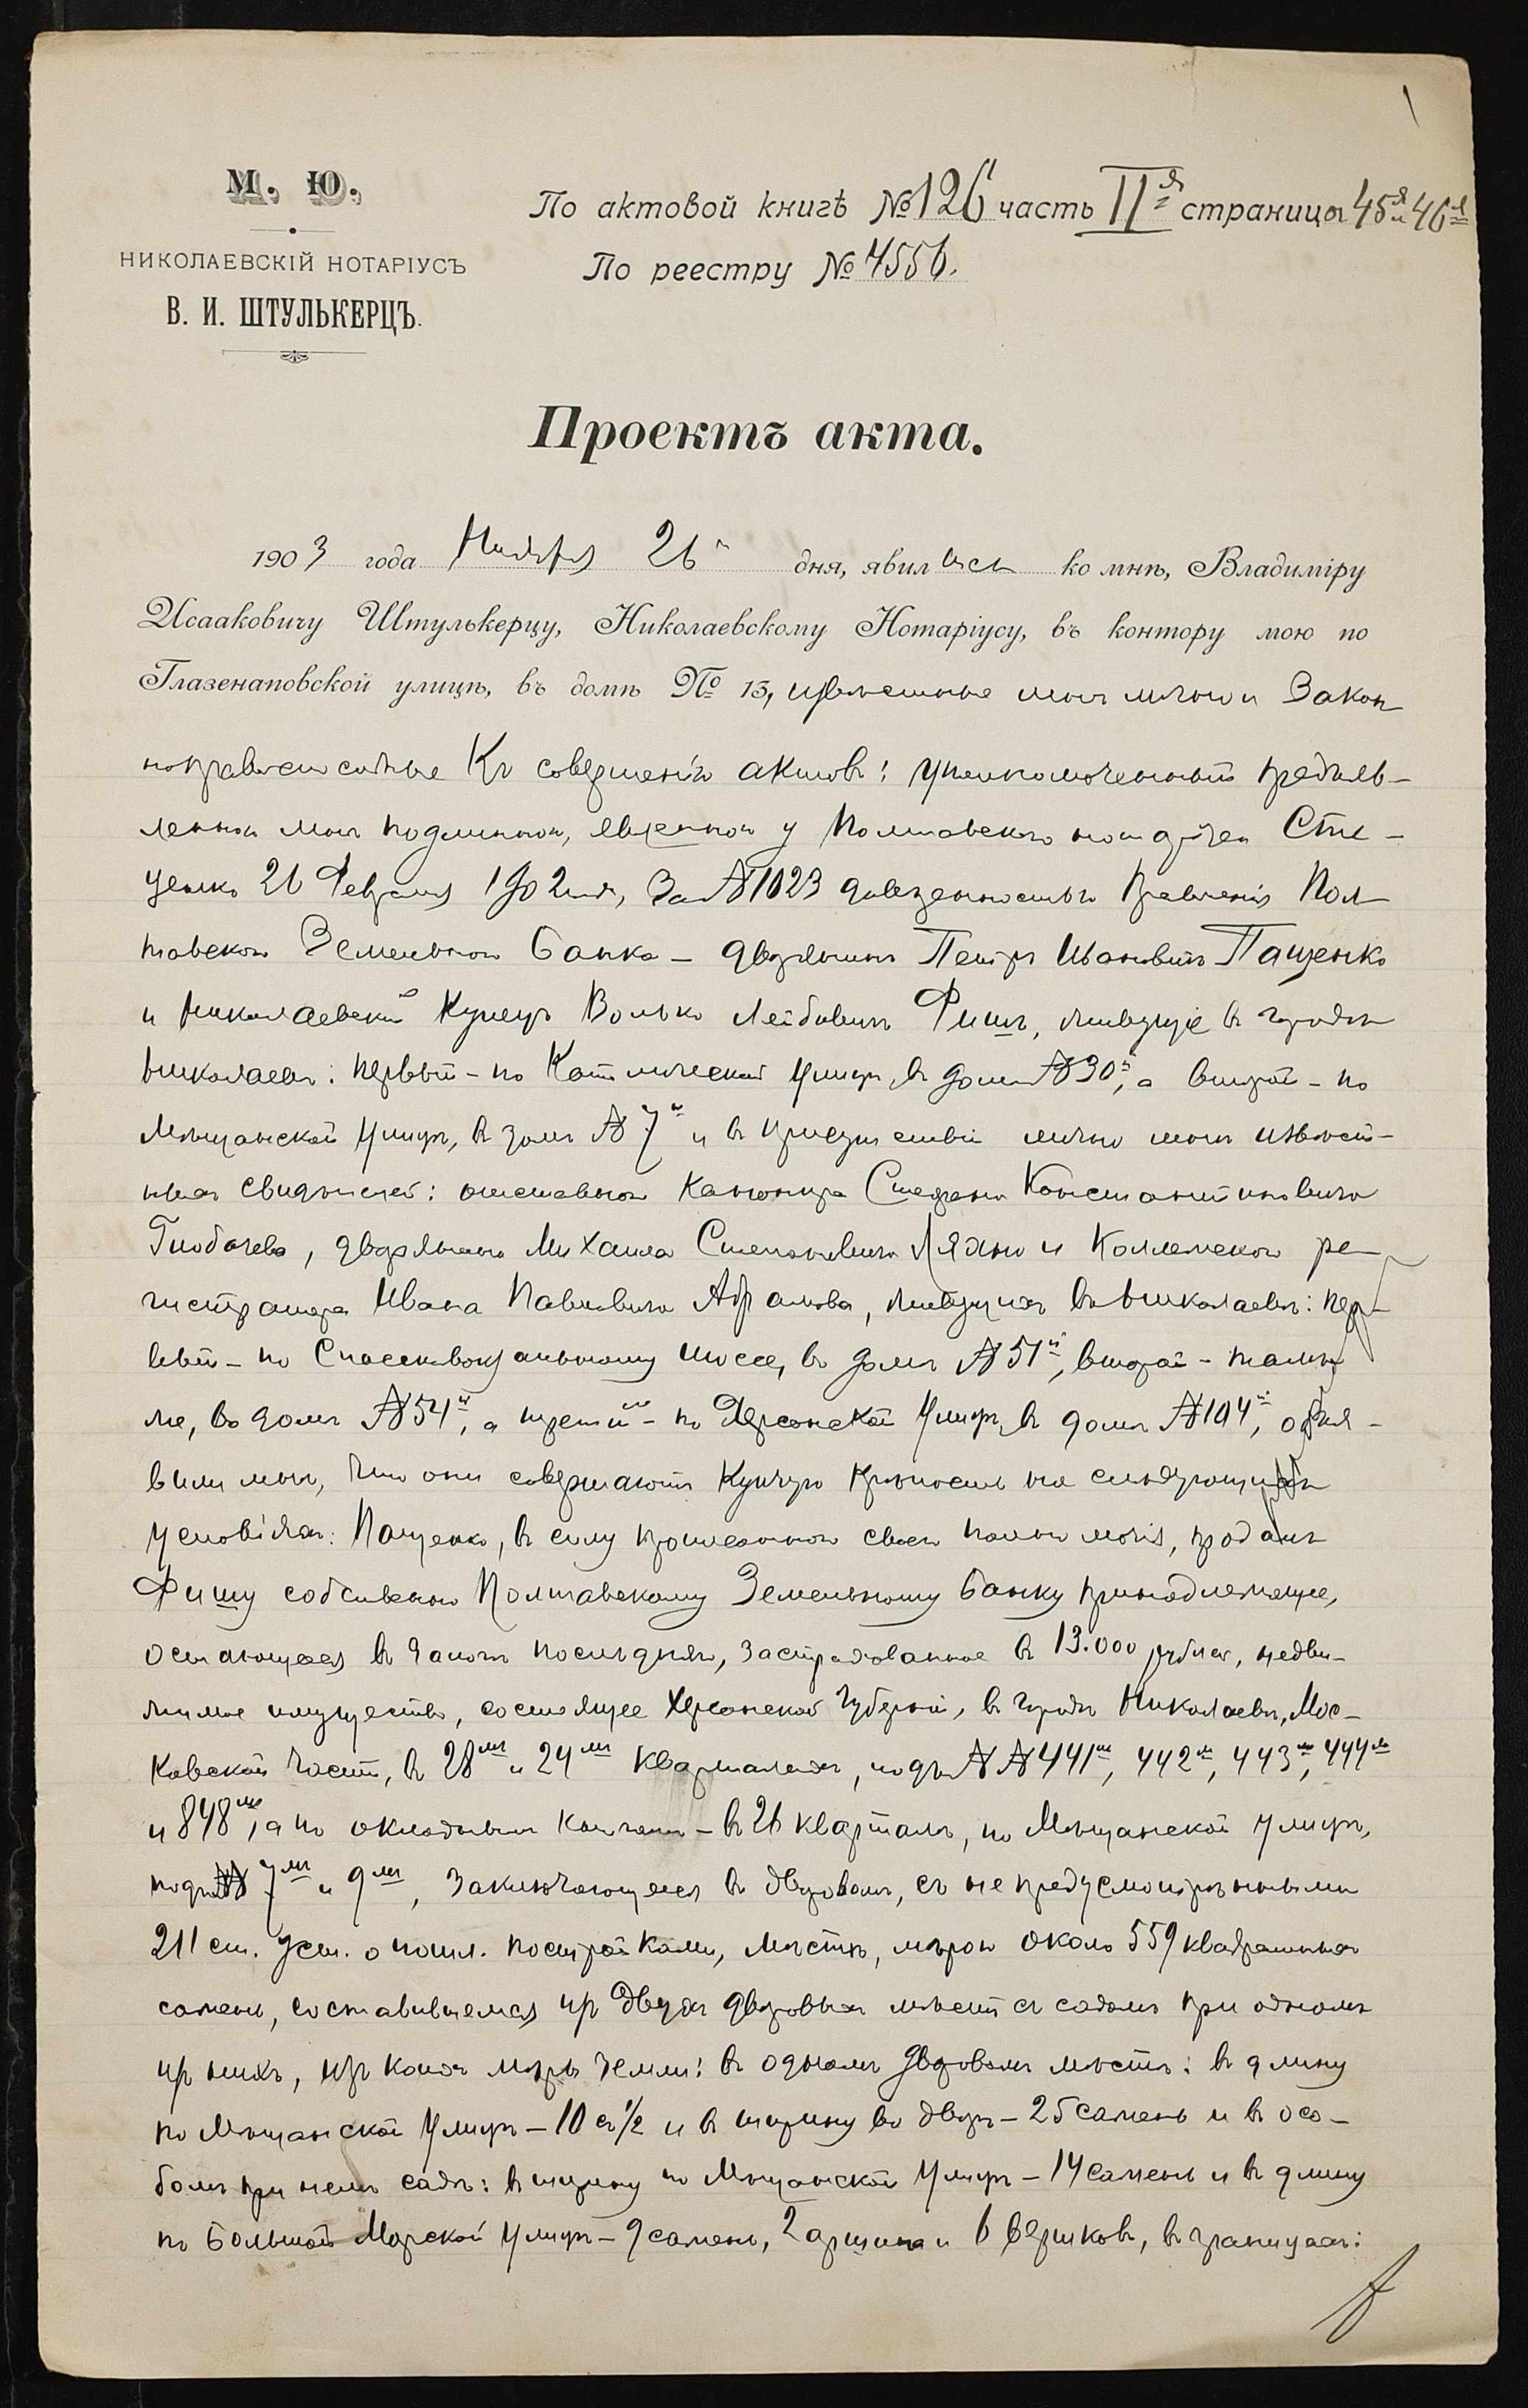 М. Ю.
НИКОЛАЕВСКІЙ НОТАРІУСЪ
В. И. ШТУЛЬКЕРЦЪ.
По актовой книгѣ № 126 часть II я страница 45я и 46я
По реестру № 4556.
Проектъ акта.
1903 года Ноября 26 дня, явились ко мнѣ, Владиміру
Исааковичу Штулькерцу, Николаевскому Нотаріусу, въ контору мою по
Глазенаповской улицѣ, въ домѣ № 13, извѣстные мнѣ лично и закон
ноправоспособные къ совершенію актовъ: уполномоченный предъяв-
ленной мнѣ подлинной, явленной у Полтавскаго нотаріуса
26 Февраля 1902 г., за № 1023 довѣренностью Правленія Пол
тавскаго Земельнаго Банка - дворянинъ Петръ Ивановичъ Пащенко
и Николаевскій купецъ Волько Лейбовичъ Фишъ, живущіе въ городѣ
Николаевѣ: первый - по Католической улицѣ, въ домѣ № 30й, а второй - по
Мѣщанской улицѣ, въ домѣ № 7й и въ присутствіи лично мнѣ извѣст-
ныхъ свидѣтелей: отставного канонира Стефана Константиновича
Гнобачева, дворянина Михаила Степановича Ляхно и Коллежскаго ре
гистратора Ивана Павловича Абрамова, живущихъ въ Николаевѣ: пер
вый - по Спасскому шоссе, въ домѣ № 51й, второй - тамъ
же, въ домѣ № 54й, а третій - по Херсонской улицѣ, въ домѣ № 104й, объя-
вили мнѣ, что они совершаютъ купчую крѣпость на слѣдующихъ
условіяхъ: Пащенко, въ силу прописаннаго своего полномочія, продалъ
Фишу собственно Полтавскому Земельному банку принадлежащее,
остающееся въ залогѣ послѣдняго, застрахованное въ 13.000 рублей, недви-
жимое имущество, состоящее Херсонской губерніи, въ городѣ Николаевѣ, Мос-
ковской части, въ 28мъ и 24мъ кварталахъ, подъ №№ 441м, 442м, 443м, 444м
и 848м, а по окладнымъ книгамъ - въ 26 кварталѣ, по Мѣщанской улицѣ,
подъ №№ 7мъ и 9мъ, заключающееся въ дворовомъ, съ не предусмотрѣнными
211 ст. Уст. о пошл. постройками, мѣстѣ, мѣрою около 559 квадратныхъ
сажень, составившемся изъ двухъ дворовыхъ мѣстъ съ садомъ при одномъ
изъ нихъ, изъ коихъ мѣры земли: въ одномъ дворовомъ мѣстѣ: въ длину
по Мѣщанской улицѣ - 10 съ ½ и въ ширину во дворъ - 25 сажень и въ осо-
бомъ при немъ садѣ: въ ширину по Мѣщанской улицѣ - 14 сажень и въ длину
по Большой Морской улицѣ - 9 сажень, 2 аршина и 6 вершковъ, въ границахъ: